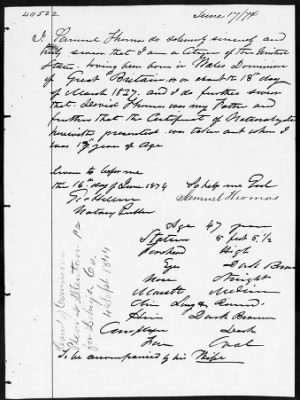 44522
June 17/74
I Samuel Thomas do solemnly sincerely and
truly swear that I am a Citizen of the United
States. having been born in Wales Dominion
of Great Britain on or about the 18th day
of March 1827. and I do further swear
that David Thomas was my Father and
further that the Certificate of Naturalization
herewith presented was taken out when I
was 17½ years of Age
Sworn to before me
the 16th day of June 1874
So help me God
Samuel Thomas
Notary Public
Age 47 years
Stature 5 feet 5 1/2
Forehead High
Eyes Dark Brown
Nose Straight
Mouth Medium
Chin Long & Round
Hair Dark Brown
Complexion Dark
Face Oval
To be accompanied by his Wife
Court of Common
Pleas at Allentown Pa
for Lehigh Co.
4 Sept 1844